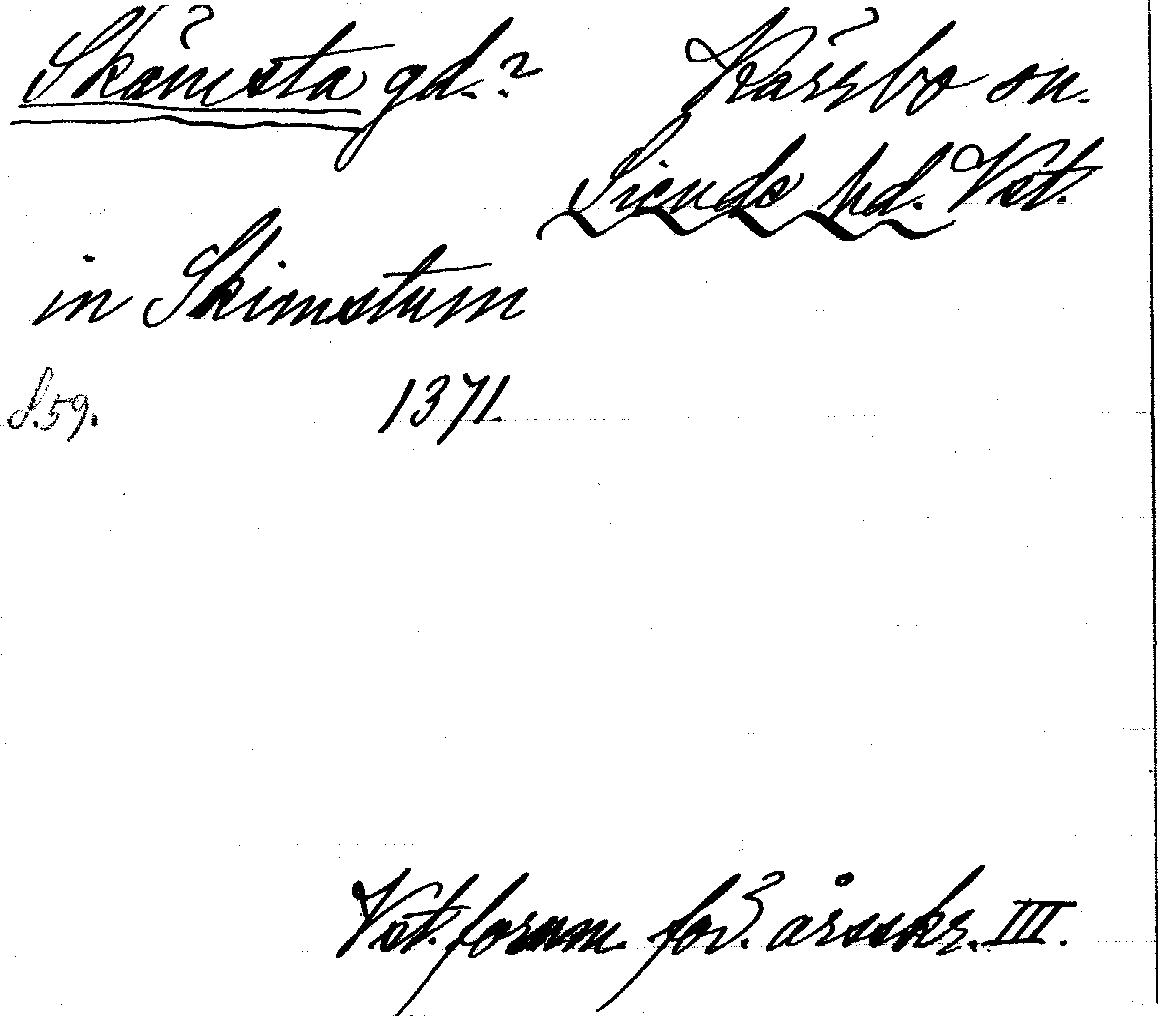 Skämsta gd.?
Kärrbo sn.
Siende hd. Vst.
in Skimstum
S.59.
1371.
Vst. fornm. för. årsskr. III.